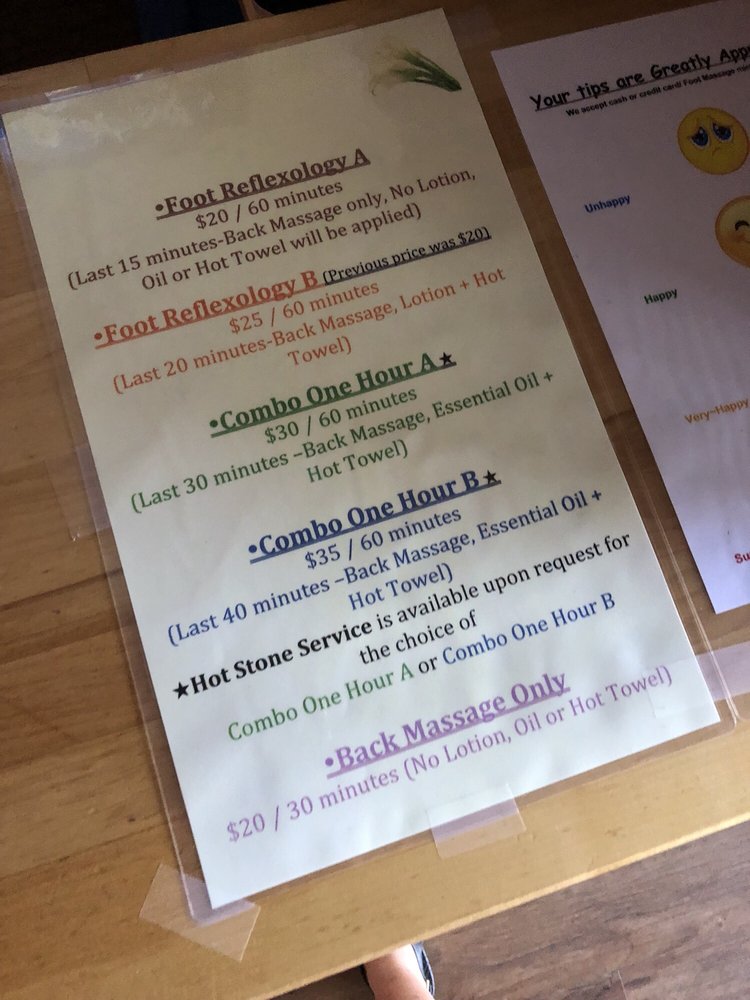 •Foot Reflexology A
$20 / 60 minutes
(Last 15 minutes-Back Massage only, No Lotion,
Oil or Hot Towel will be applied)
•Foot Reflexology B (Previous price was $20)
$25 / 60 minutes
(Last 20 minutes-Back Massage, Lotion + Hot
Towel)
•Combo One Hour A★
$30 / 60 minutes
(Last 30 minutes –Back Massage, Essential Oil +
Hot Towel)
•Combo One Hour B★
$35 / 60 minutes
(Last 40 minutes –Back Massage, Essential Oil +
Hot Towel)
★Hot Stone Service is available upon request for
the choice of
Combo One Hour A or Combo One Hour B
•Back Massage Only
$20 / 30 minutes (No Lotion, Oil or Hot Towel)
Your tips are Greatly
We accept cash or credit card! Foot Massage
Unhappy
Happy
Very~Happy